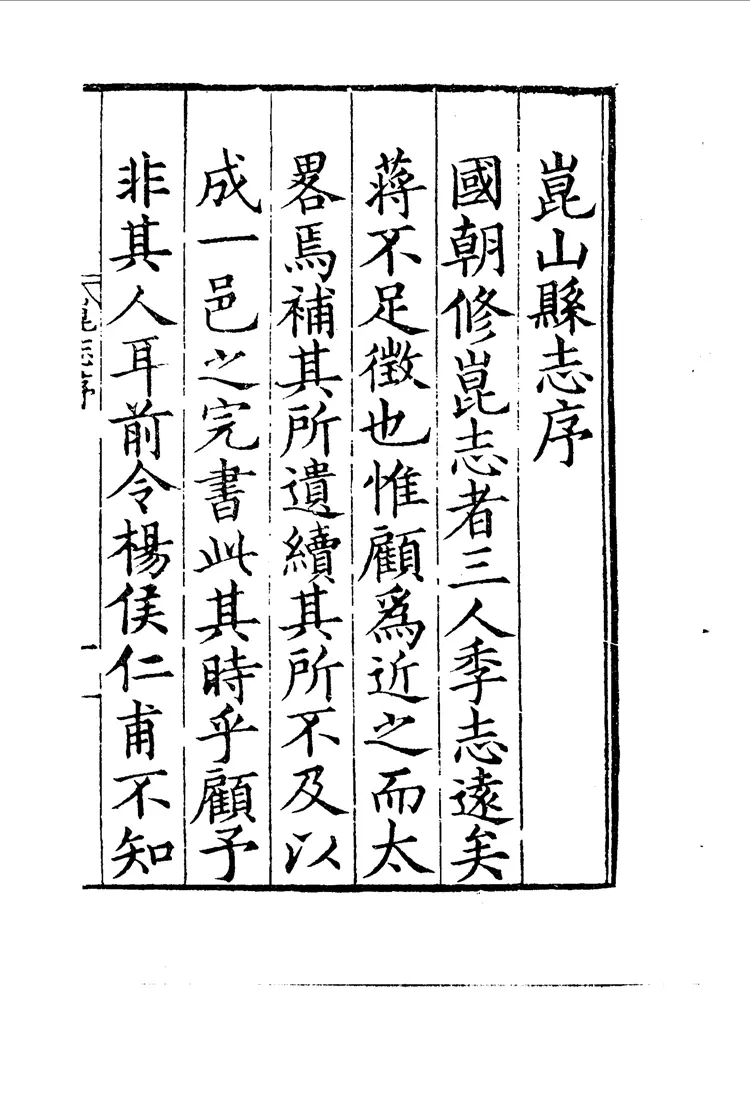 崑山縣志序
國朝修崑志者三人季志遠矣
蔣不足徵也惟顧爲近之而太
畧焉補其所遺續其所不及以
成一邑之完書此其時乎顧予
非其人耳前令楊侯仁甫不知
崑志序
一